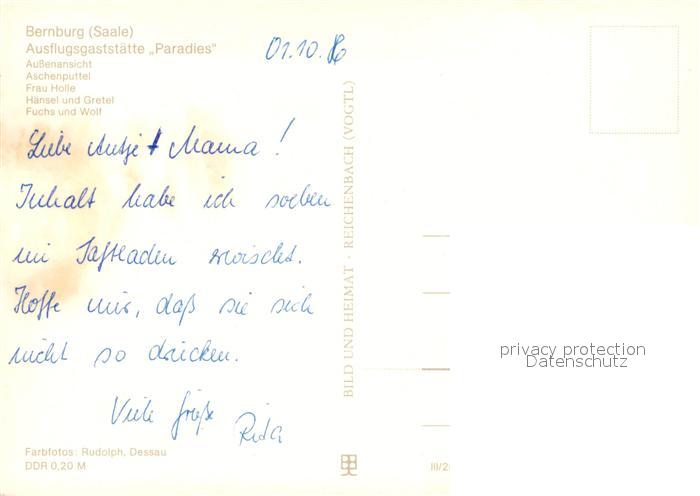 Bernburg (Saale)
Ausflugsgaststätte „Paradies"
Außenansicht
Aschenputtel
Frau Holle
Hänsel und Gretel
Fuchs und Wolf
01.10.86
Liebe Antje + Mama!
Inhalt habe ich soeben
im Saftladen erwischt.
Hoffe nur, daß sie sich
nicht so drücken.
Viele Grüße
Rita
Farbfotos: Rudolph, Dessau
DDR 0,20 M
BILD UND HEIMAT · REICHENBACH (VOGTL)
III/2
privacy protection
Datenschutz